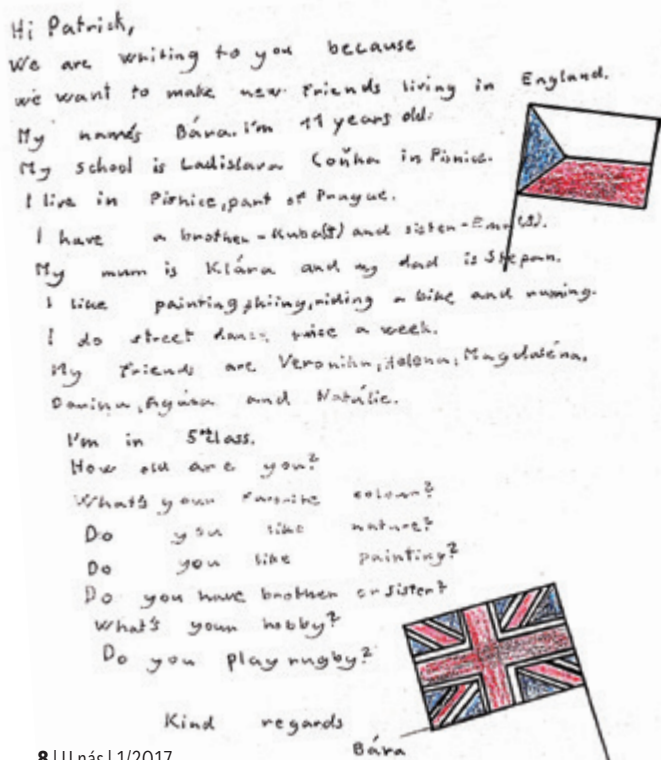 Hi Patrick,
We are writing to you because
we want to make new friends living in England.
My name's Bára. I'm 11 years old.
My school is Ladislava Coňka in Pisnice.
I live in Pisnice, part of Prague.
I have a brother - Kuba and sister -
My mum is Klára and my dad is Štěpán.
I like painting, skiing, riding a bike and running.
I do street dance twice a week.
My friends are Veronika, Helena, Magdaléna,
and Natálie.
I'm in 5th class.
How old are you?
What's your favorite colour?
Do you like nature?
Do you like painting?
Do you have brother or sister?
What's your hobby?
Do you play rugby?
Kind regards
Bára
8 | U nás | 1/2017